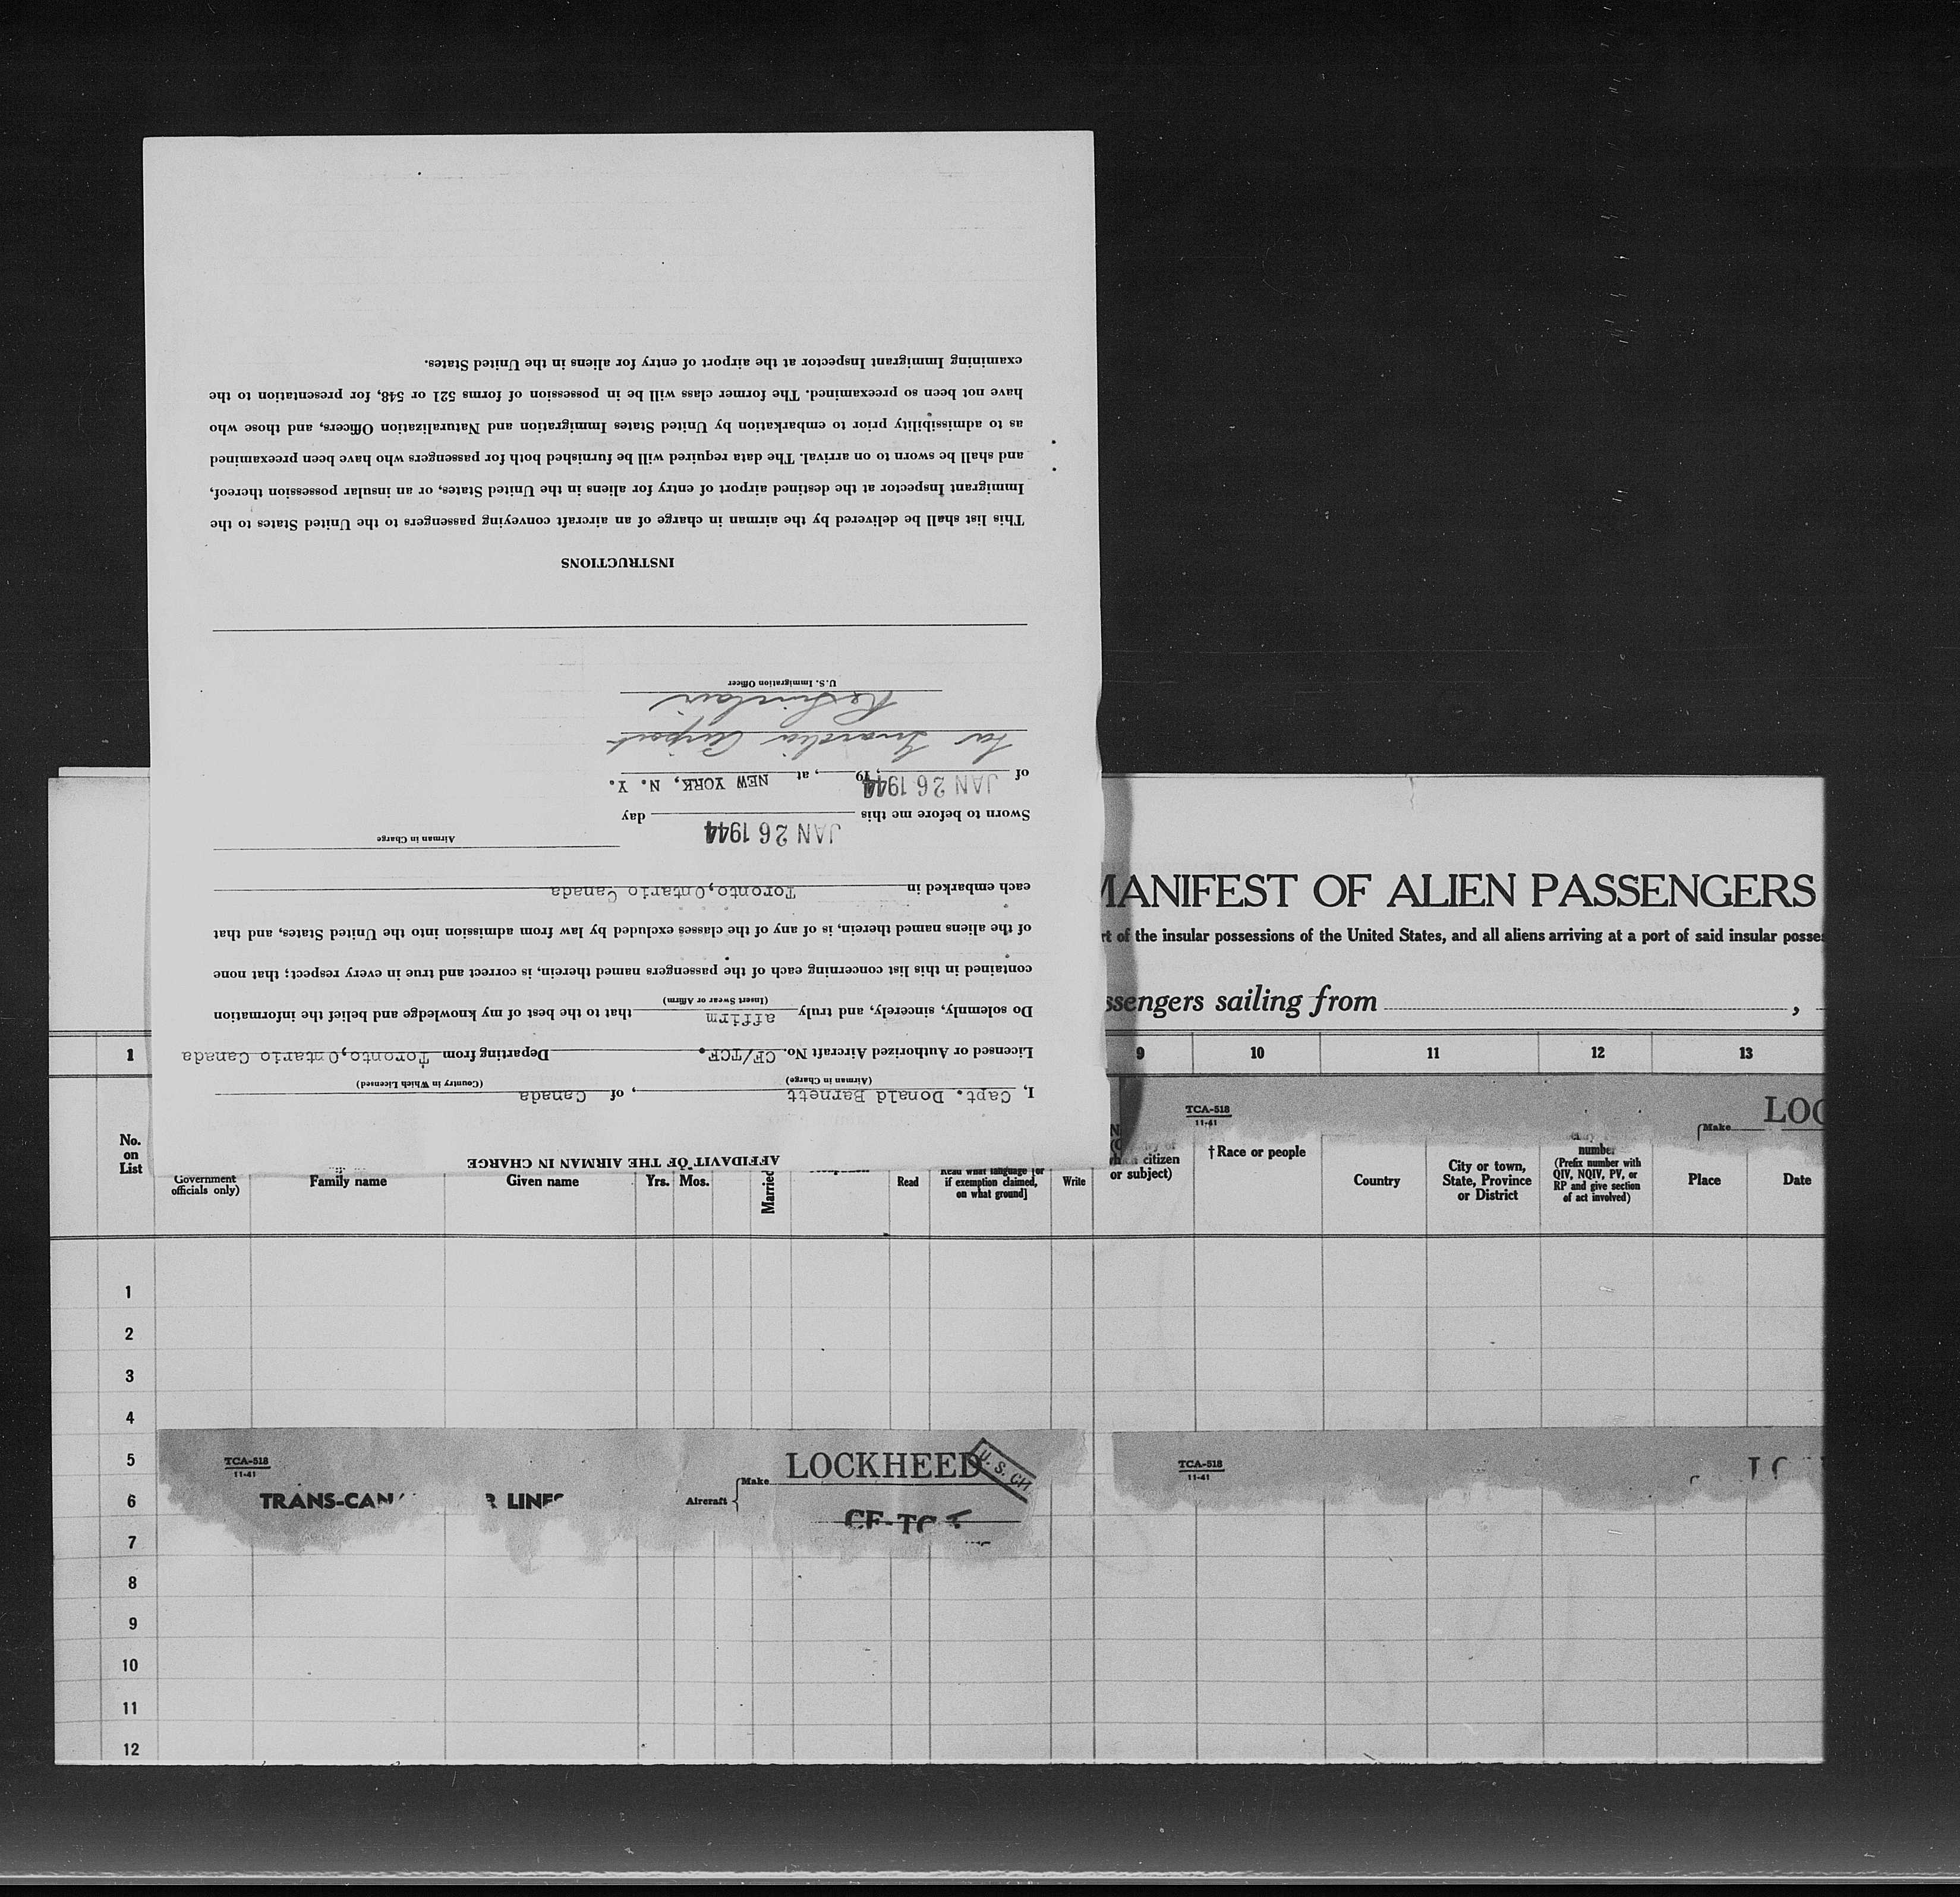 AFFIDAVIT OF THE AIRMAN IN CHARGE
I, Capt. Donald Barnett, of Canada
(Airman in Charge) (Country in Which Licensed)
Licensed or Authorized Aircraft No. CF/TCF. Departing from Toronto, Ontario Canada
Do solemnly, sincerely, and truly affirm that to the best of my knowledge and belief the information
(Insert Swear or Affirm)
contained in this list concerning each of the passengers named therein, is correct and true in every respect; that none
of the aliens named therein, is of any of the classes excluded by law from admission into the United States, and that
each embarked in Toronto, Ontario Canada
Airman in Charge
JAN 26 1944
Sworn to before me this day
of JAN 26 1944, 19, at NEW YORK, N. Y.
La Guardia Airport
U.S. Immigration Officer
INSTRUCTIONS
This list shall be delivered by the airman in charge of an aircraft conveying passengers to the United States to the
Immigrant Inspector at the destined airport of entry for aliens in the United States, or an insular possession thereof,
and shall be sworn to on arrival. The data required will be furnished both for passengers who have been preexamined
as to admissibility prior to embarkation by United States Immigration and Naturalization Officers, and those who
have not been so preexamined. The former class will be in possession of forms 521 or 548, for presentation to the
examining Immigrant Inspector at the airport of entry for aliens in the United States.
MANIFEST OF ALIEN PASSENGERS
rt of the insular possessions of the United States, and all aliens arriving at a port of said insular posse
ssengers sailing from ,
1 9 10 11 12 13
TCA-518
11-41
Make LOC
No.
on
List
Government
officials only)
Family name
Given name
Yrs. Mos.
Married
Read
Read what language [or
if exemption claimed,
on what ground]
Write
citizen
or subject)
†Race or people
Country
City or town,
State, Province
or District
number
(Prefix number with
QIV, NQIV, PV, or
RP and give section
of act involved)
Place
Date
1
2
3
4
5
6
7
8
9
10
11
12
TCA-518
11-41
TRANS-CAN R LINES
Aircraft
Make LOCKHEED
U. S. CIT
CF-TC
TCA-518
11-41